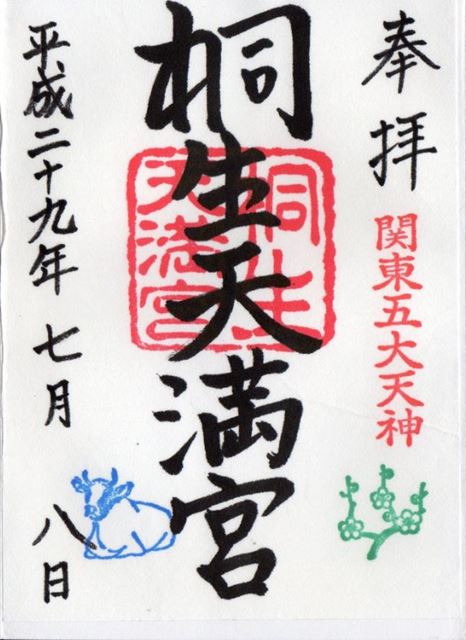 奉拝
関東五大天神
桐生天満宮
桐生天満宮
平成二十九年七月八日